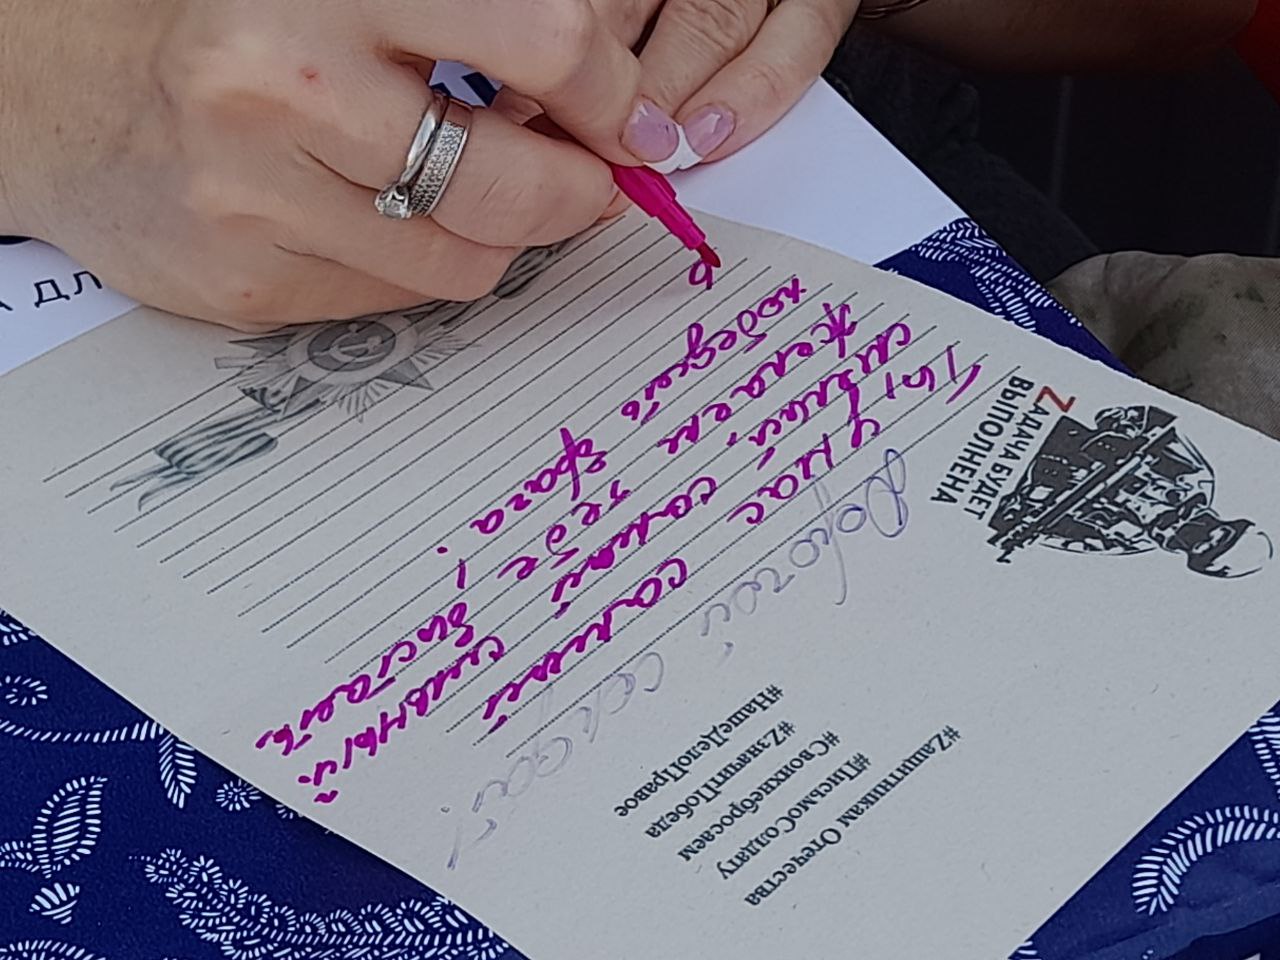 #Zащитникам Отечества
#ПисьмоСолдату
#Своихнебросаем
#ZзначитПобеда
#НашеДелоПравое
ZАДАЧА БУДЕТ
ВЫПОЛНЕНА
Дорогой солдат!
Ты, у нас самый
смелый, самый сильный.
Желаем тебе выстоять,
победить врага!
А ДЛ